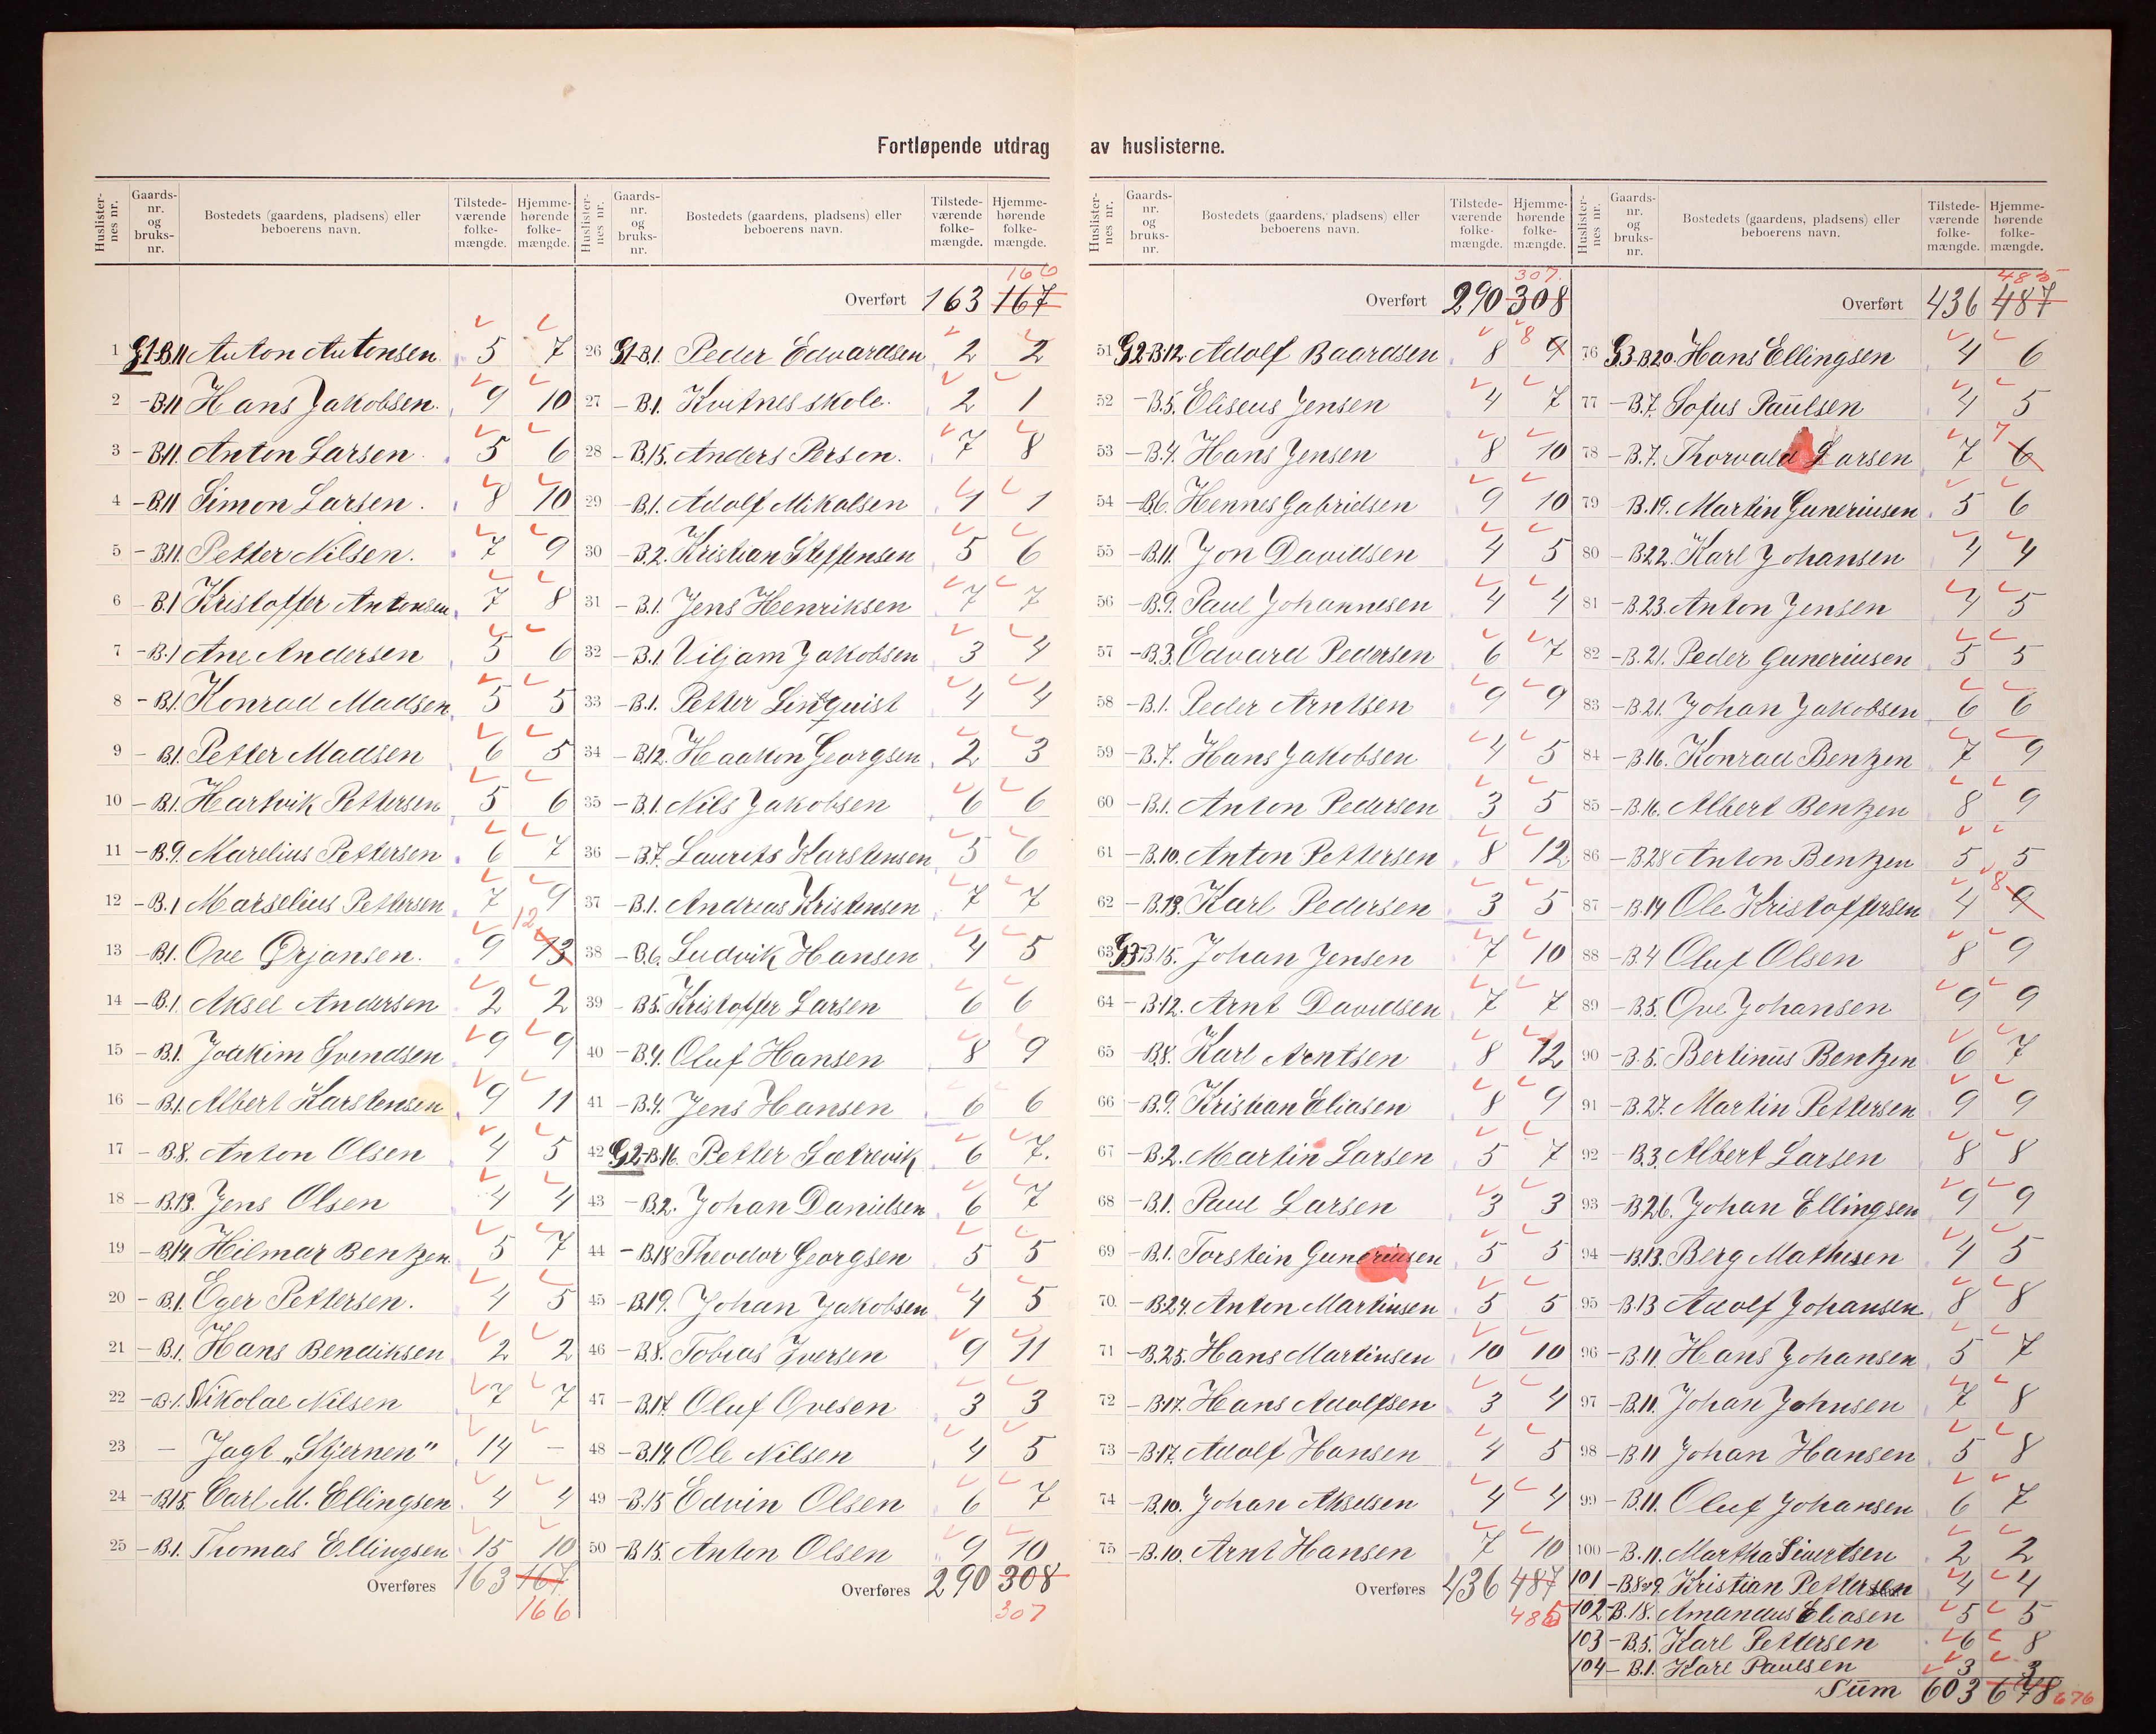 Fortløpende utdrag av huslisterne.
Huslister-nes nr. Gaards-nr. og bruks-nr. Bostedets (gaardens, pladsens) eller beboerens navn. Tilstede-værende folke-mængde. Hjemme-hørende folke-mængde.
1 G1-B.11 Anton Antonsen 5 7
2 -B.11 Hans Jakobsen. 9 10
3 -B.11. Anton Larsen. 5 6
4 -B.11 Simon Larsen. 8 10
5 -B.11. Petter Nilsen. 7 9
6 -B.1 Kristoffer Antonsen 7 8
7 -B.1 Ane Andersen 5 6
8 -B.1. Konrad Madsen 5 5
9 -B.1. Petter Madsen 6 5
10 -B.1. Hartvik Pettersen 5 6
11 -B.9. Marelius Pettersen 6 7
12 -B.1 Marselius Pettersen 7 9
13 -B.1. Ove Ørjansen. 9 13 12
14 -B.1. Aksel Andersen 2 2
15 -B.1. Joakim Svendsen 9 9
16 -B.1. Albert Karstensen 9 11
17 -B.8. Anton Olsen 4 5
18 -B.13. Jens Olsen 4 4
19 -B.14. Hilmar Bentzen. 5 7
20 -B.1. Eger Pettersen. 4 5
21 -B.1. Hans Bendiksen 2 2
22 -B.1. Nikolae Nilsen 7 7
23 - Jagt „Stjernen" 14 -
24 -B.15. Carl M. Ellingsen. 4 4
25 -B.1. Thomas Ellingsen 15 10
Overføres 163 167
166
Huslister-nes nr. Gaards-nr. og bruks-nr. Bostedets (gaardens, pladsens) eller beboerens navn. Tilstede-værende folke-mængde. Hjemme-hørende folke-mængde.
166
Overført 163 167
26 G1-B.1. Peder Edvardsen 2 2
27 -B.1. Kvitnes skole. 2 1
28 -B.15. Anders Person. 7 8
29 -B.1. Adolf Mikalsen 1 1
30 -B.2. Kristian Steffensen 5 6
31 -B.1. Jens Henriksen 7 7
32 -B.1. Viljam Jakobsen 3 4
33 -B.1. Petter Linquist 4 4
34 -B.12. Haakon Georgsen 2 3
35 -B.1. Nils Jakobsen 6 6
36 -B.7. Laurits Karstensen 5 6
37 -B.1. Andreas Kristensen 7 7
38 -B.6. Ludvik Hansen 4 5
39 -B.5. Kristoffer Larsen 6 6
40 -B.4. Oluf Hansen 8 9
41 -B.4. Jens Hansen 6 6
42 G2-B.16. Petter Sætrevik 6 7.
43 -B.2. Johan Danielsen 6 7
44 -B.18 Theodor Georgsen 5 5
45 -B.19. Johan Jakobsen 4 5
46 -B.8. Tobias Iversen 9 11
47 -B.17. Oluf Ovesen 3 3
48 -B.14. Ole Nilsen 4 5
49 -B.15 Edvin Olsen 6 7
50 -B.15. Anton Olsen 9 10
Overføres 290 308
307
Huslister-nes nr. Gaards-nr. og bruks-nr. Bostedets (gaardens, pladsens) eller beboerens navn. Tilstede-værende folke-mængde. Hjemme-hørende folke-mængde.
307.
Overført 290 308
51 G2-B.12. Adolf Baardsen 8 9 8
52 -B.5. Eliseus Jensen 4 7
53 -B.4. Hans Jensen 8 10
54 -B.6. Hennes Gabrielsen 9 10
55 -B.11. Jon Davidsen 4 5
56 -B.9. Paul Johannesen 4 4
57 -B.3. Edvard Pedersen 6 7
58 -B.1. Peder Arntsen 9 9
59 -B.7. Hans Jakobsen 4 5
60 -B.1. Anton Pedersen 3 5
61 -B.10. Anton Pettersen 8 12
62 -B.13. Karl Pedersen 3 5
63 G3-B.15. Johan Jensen 7 10
64 -B.12. Arnt Davidsen 7 7
65 -B.8. Karl Arntsen 8 12
66 -B.9. Kristian Eliasen 8 9
67 -B.2. Martin Larsen 5 7
68 -B.1. Paul Larsen 3 3
69 -B.1. Torstein Guneriusen 5 5
70. -B.24. Anton Martinsen 5 5
71 -B.25. Hans Martinsen 10 10
72 -B.17. Hans Adolfsen 3 4
73 -B.17. Adolf Hansen 4 5
74 -B.10. Johan Akselsen 4 4
75 -B.10. Arnt Hansen 7 10
Overføres 436 487
485
Huslister-nes nr. Gaards-nr. og bruks-nr. Bostedets (gaardens, pladsens) eller beboerens navn. Tilstede-værende folke-mængde. Hjemme-hørende folke-mængde.
485
Overført 436 487
76 G3-B.20. Hans Ellingsen 4 6
77 -B.7. Sofus Paulsen 4 5
78 -B.7. Thorvald Larsen 7 6 7
79 -B.19. Martin Guneriusen 5 6
80 -B.22. Karl Johansen 4 4
81 -B.23. Anton Jensen 4 5
82 -B.21. Peder Guneriusen 5 5
83 -B.21. Johan Jakobsen 6 6
84 -B.16. Konrad Bentzen 7 9
85 -B.16. Albert Bentzen 8 9
86 -B.28 Anton Bentzen 5 5
87 -B.14 Ole Kristoffersen 4 9 8
88 -B.4 Oluf Olsen 8 9
89 -B.5. Ove Johansen 9 9
90 -B.5. Bertinus Bentzen 6 7
91 -B.27. Martin Pettersen 9 9
92 -B.3. Albert Larsen 8 8
93 -B.26. Johan Ellingsen 9 9
94 -B.13. Berg Mathisen 4 5
95 -B.13 Adolf Johansen 8 8
96 -B.11. Hans Johansen 5 7
97 -B.11. Johan Johnsen 7 8
98 -B.11 Johan Hansen 5 8
99 -B.11. Oluf Johansen 6 7
100 -B.11. Martha Sivertsen 2 2
101 -B.8 og 9. Kristian Pettersen 4 4
102 -B.18. Amandus Eliasen 5 5
103 -B.5. Karl Pettersen 6 8
104 -B.1. Karl Paulsen 3 3
Sum 603 678 676